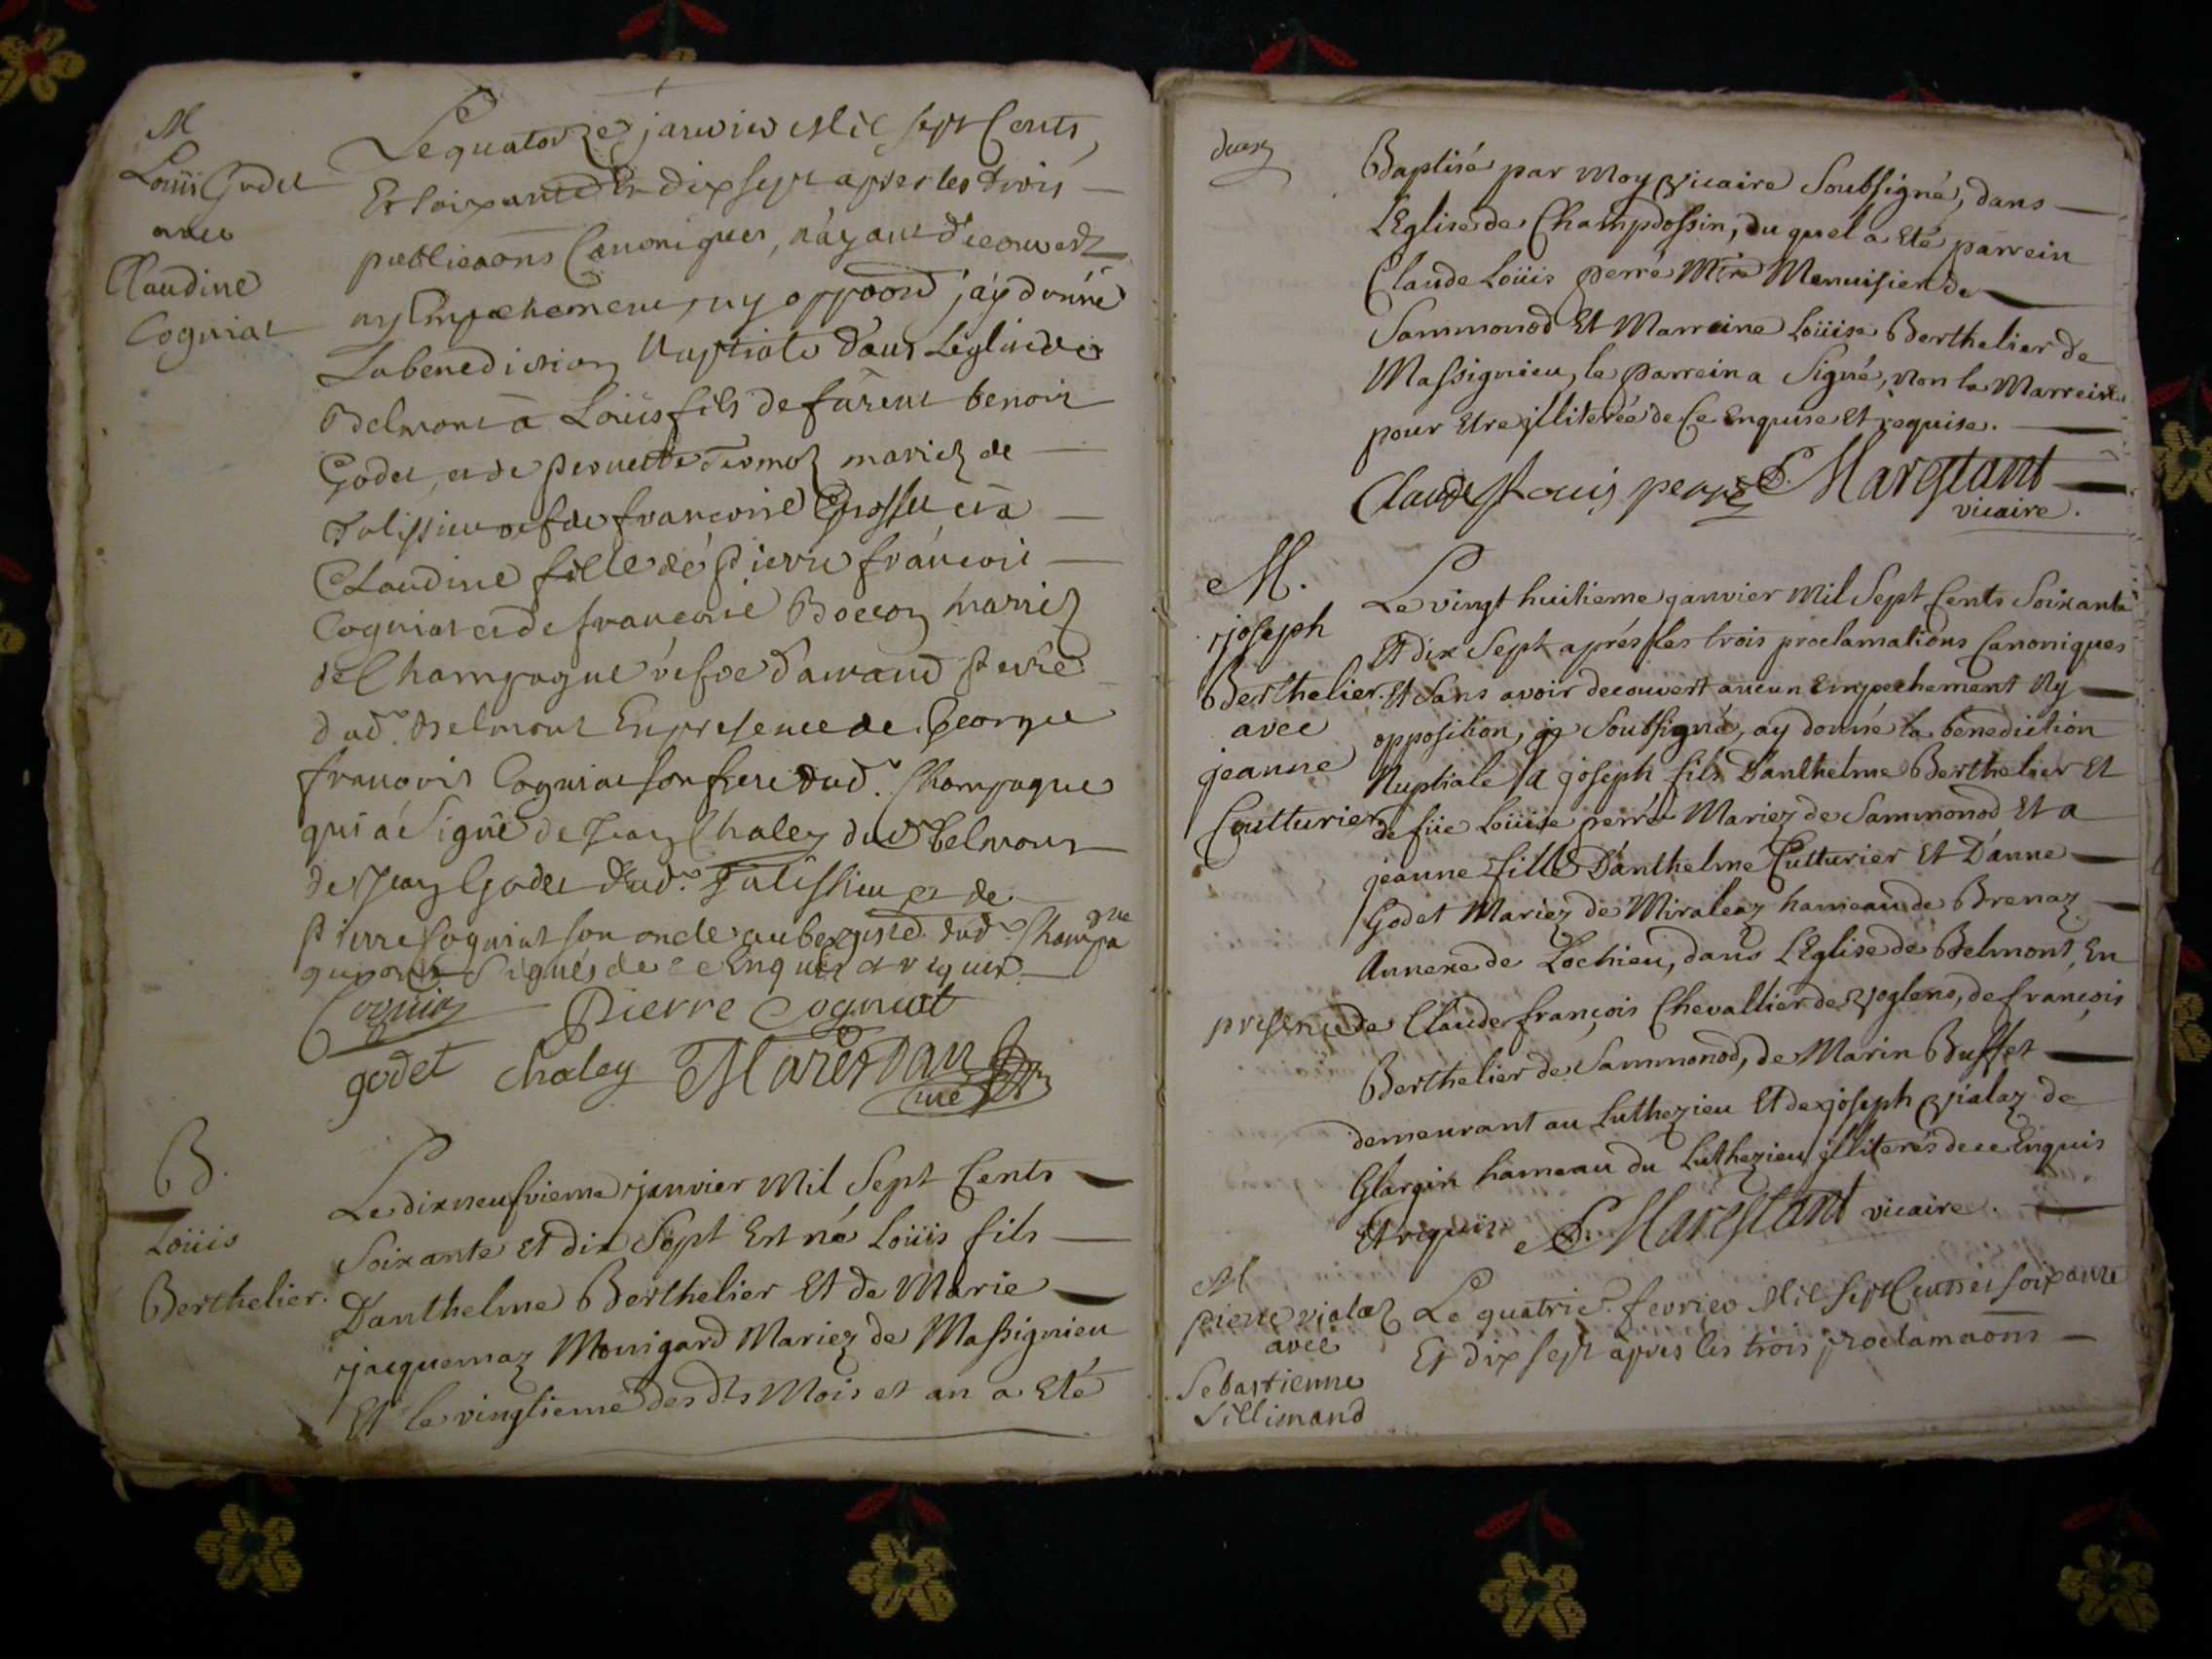 M
Loüis Godet
avec
Claudine
Cogniat
Le quatorze janvier Mil sept Cents,
Et soixante Et dix sept apres les trois
publicaons Canoniques, n'ayant decouvert
ny Empechement, ny oppoon j'ay donné
La benediction Nuptiale dans Leglise de
Belmont a Loüis fils de furent benoit
Godet, et de pernette mariez de
francoise et a
Claudine fille de Pierre françois
Cogniat et de françoise Bocon mariez
de Champagne vefve Perré
dud. Belmont En presence de George
francois Cogniat son frere dud. Champagne
qui a Signé de Jean Chaley dud belmont
de Jean Godet dud. et de
Pierre Cogniat son oncle aubergiste dud. Champagne
qui ont Signés de ce Enquis et requis.
Cogniat Pierre Cogniat
godet chaley Marestan
curé
B.
Loüis
Berthelier.
Le dix neufvieme janvier Mil Sept Cents
Soixante Et dix Sept Est né Loüis fils
D'anthelme Berthelier Et de Marie
jacquemaz Monigard Mariez de Massignieu
Et le vingtieme des dts Mois et an a Eté
Baptisé par Moy Vicaire Soubsigné, dans
L'Eglise de Champdossin, du quel a Eté parrein
Claude Loüis perré Mtre Menuisier de
Sammonod Et Marreine Loüise Berthelier de
Massignieu, le parrein a Signé, Non la Marreine
pour Etre jlliterée de Ce Enquise Et requise.
Claude Louis perré P. Marestant
vicaire.
M.
joseph
Berthelier.
avec
jeanne
Coutturier
Le vingt huitieme janvier Mil Sept Cents Soixante
Et dix Sept aprés les trois proclamations Canoniques
Et Sans avoir decouvert aucun Empechement Ny
opposition, je Soubsigné, ay donné la benediction
Nuptiale a joseph fils D'anthelme Berthelier Et
de füe Loüise perré Mariez de Sammonod Et a
jeanne fille D'anthelme Cutturier Et D'anne
Godet Mariez de Miraleaz hameau de Brenaz
Annexe de Lochieu, dans L'Eglise de Belmont, En
presence de Claude françois Chevallier de Voglens, de françois
Berthelier de Sammonod, de Marin Buffet
demeurant au Luthezieu Et de joseph Vialaz de
Glargin hameau du Luthezieu jlliterés de ce Enquis
Et requis. P. Marestant vicaire.
M
pierre vialaz
avec
Sebastienne
Sillimand
Le quatrie. fevrier Mil Sept Cents et soixante
Et dix sept apres les trois proclamaons